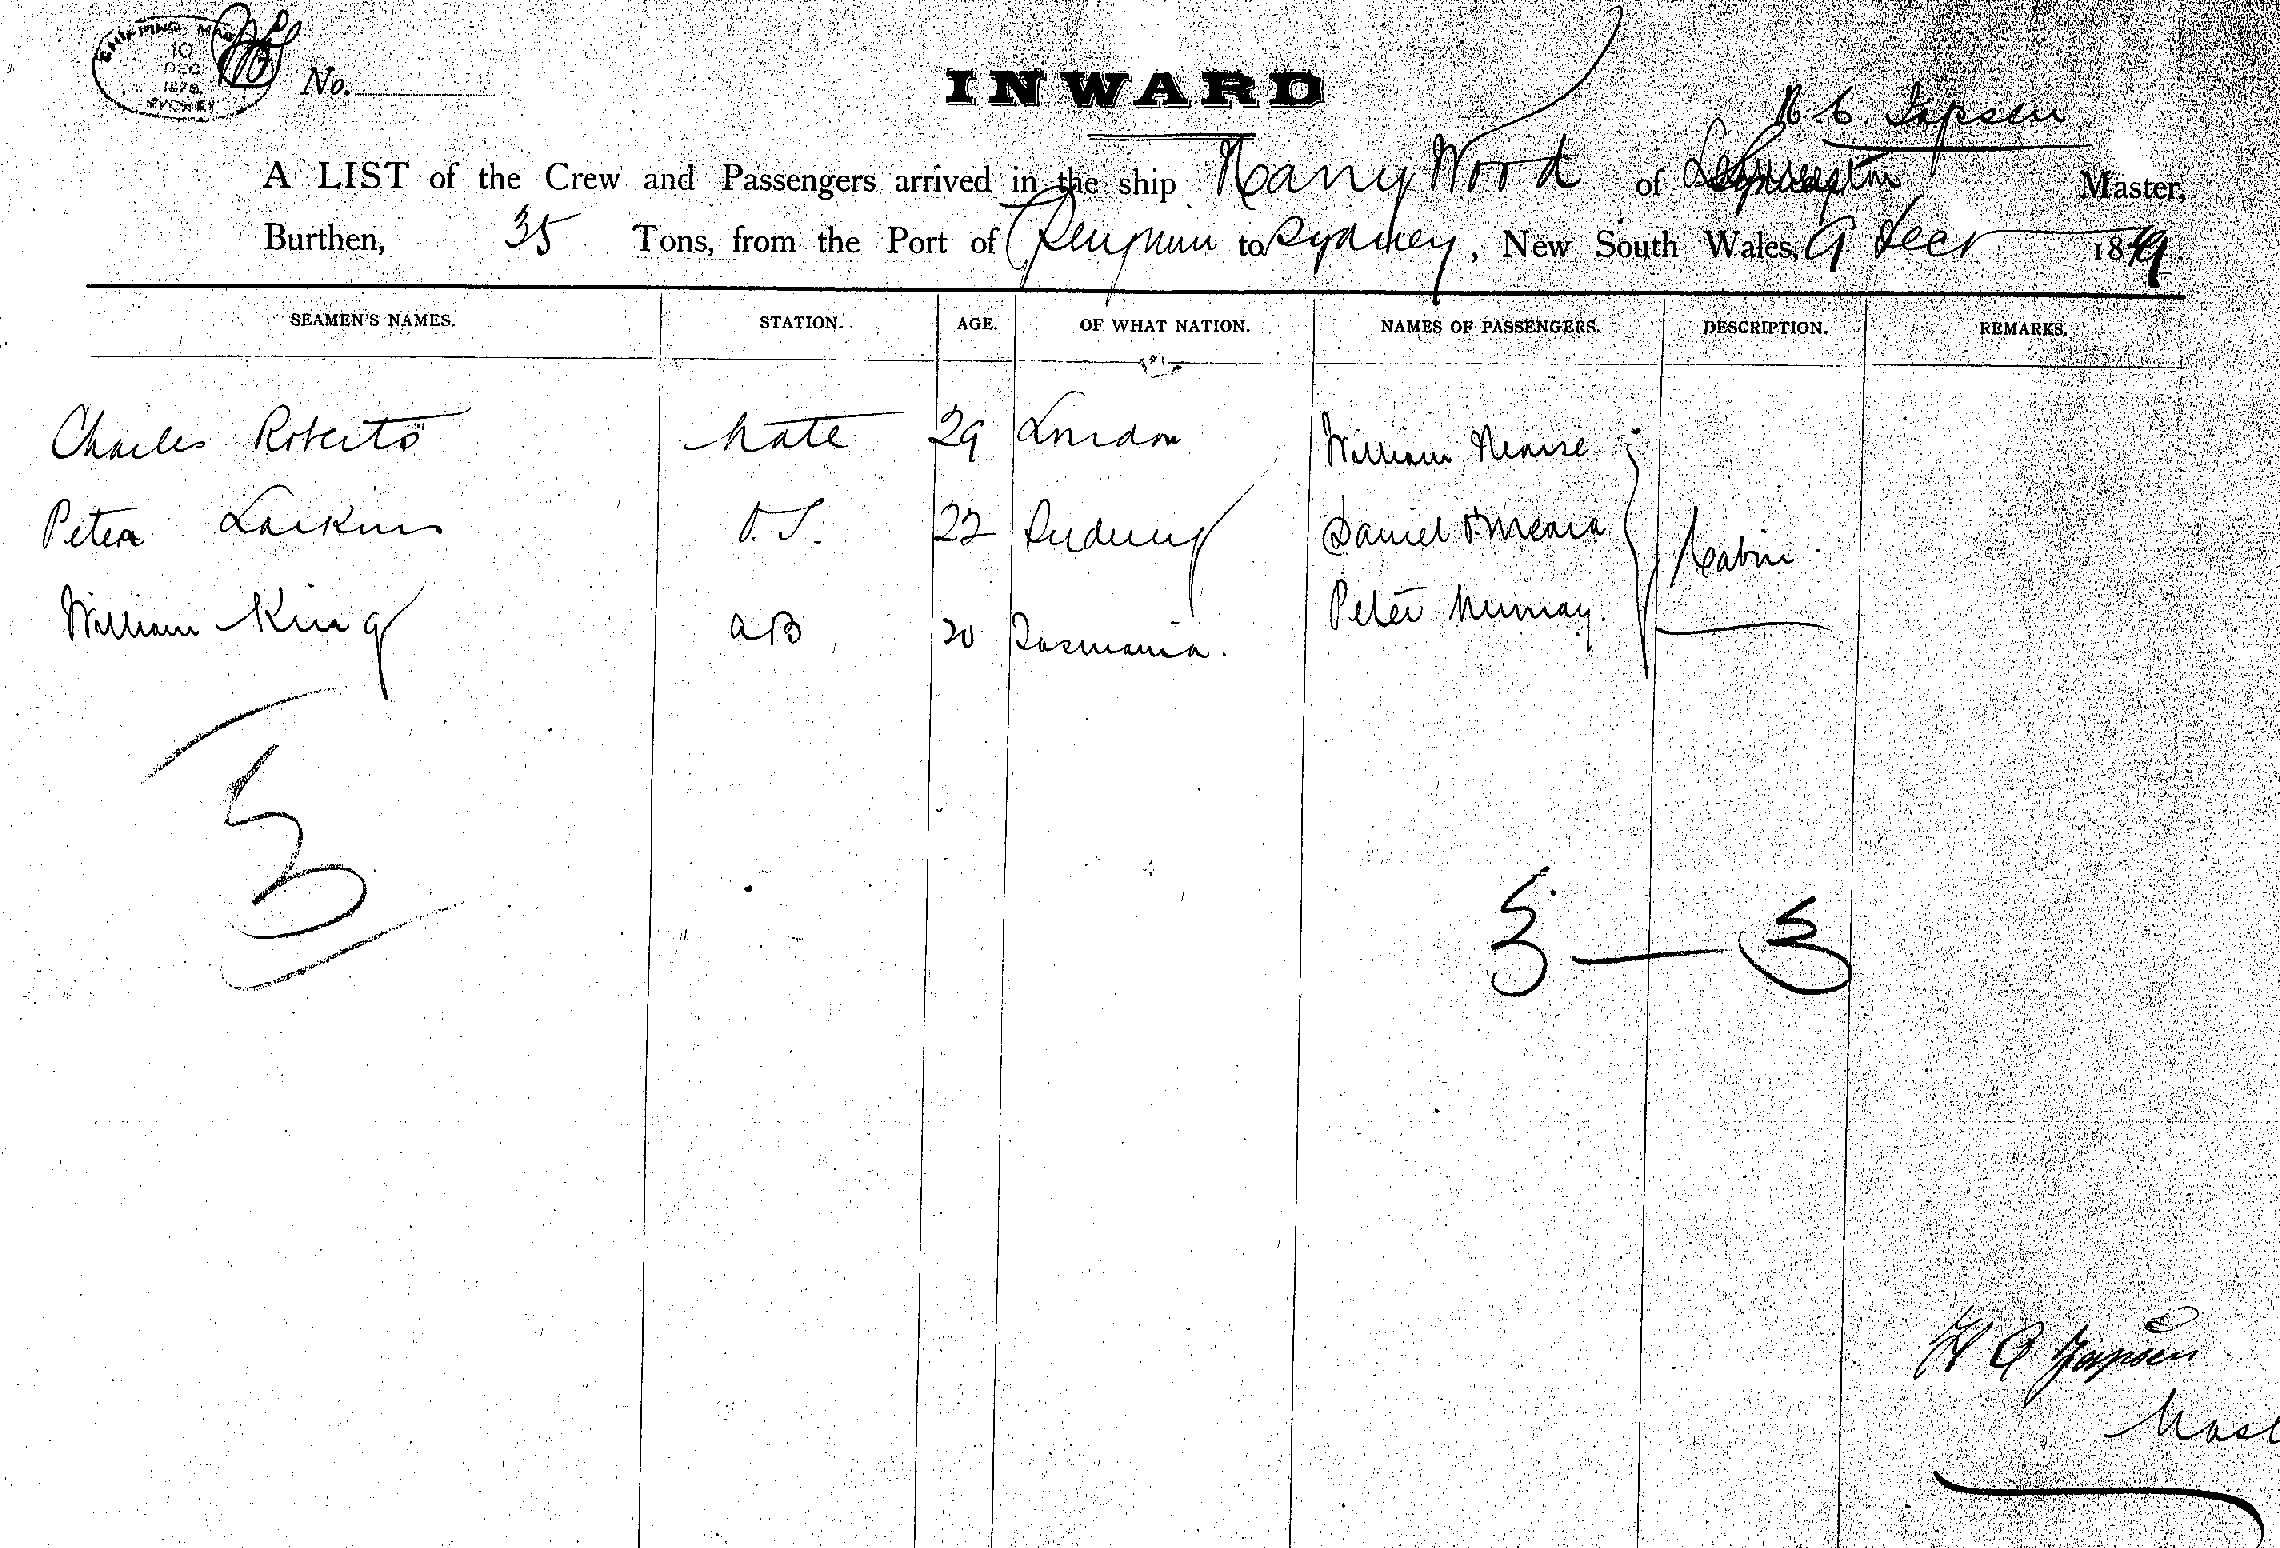 SHIPPING MAS
10
DEC
1879
SYDNEY
No.
INWARD
A LIST of the Crew and Passengers arrived in the ship Nancy Wood of Master,
Burthen, 35 Tons, from the Port of to Sydney, New South Wales, 9 Decr 1879
SEAMEN'S NAMES. STATION. AGE. OF WHAT NATION. NAMES OF PASSENGERS. DESCRIPTION. REMARKS.
Charles Roberts Mate 29 London William
Peter Larkins O.S. 22 Sydney Daniel O'Meara Cabin
William King AB 20 Tasmania. Peter Murray.
3
3 — 3
H C
Mast